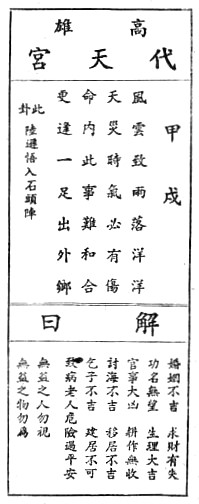 高雄
代天宮
甲戌
風雲致雨落洋洋
天災時氣必有傷
命內此事難和合
更逢一足出外鄉
此卦 陸遜悟入石頭陣
解曰
婚姻不吉 求財有失
功名無望 生理大吉
官事大凶 耕作無收
討海不吉 移居不吉
乞子不吉 建居不可
致病老人危險過平安
無益之人勿視
無益之物勿為